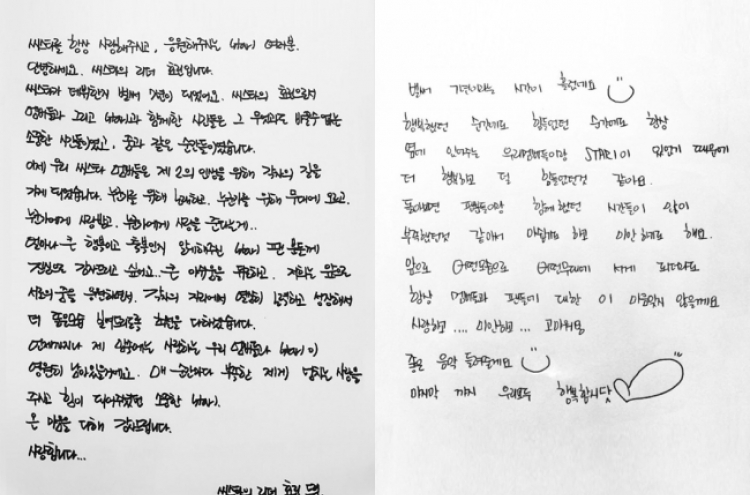 씨스타를 항상 사랑해주시고, 응원해주시는 STAR1 여러분.
안녕하세요. 씨스타의 리더 효린입니다.
씨스타가 데뷔한지 벌써 7년이 되었어요. 씨스타의 효린으로서
멤버들과 그리고 STAR1과 함께한 시간들은 그 무엇과도 바꿀수 없는
소중한 시간들이였고, 꿈과 같은 순간들이였습니다.
이제 우리 씨스타 멤버들은 제 2의 인생을 위해 각자의 길을
가게 되었습니다. 누군가를 위해 노래하고, 누군가를 위해 무대에 오르고,
누군가에게 사랑받고, 누군가에게 사랑을 준다는게..
얼마나 큰 행복이고 축복인지 알게해주신 STAR1 팬 분들께
진심으로 감사드리고 싶어요. 큰 아쉬움을 뒤로하고, 저희는 앞으로
서로의 꿈을 응원하면서, 각자의 자리에서 열심히 노력하고 성장해서
더 좋은모습 보여드리도록 최선을 다하겠습니다.
언제까지나 제 마음에는 사랑하는 우리 멤버들과 STAR1이
영원히 남아있을거에요. 매 순간마다 부족한 제게 넘치는 사랑을
주시고 힘이 되어주셨던 소중한 STAR1.
온 마음을 다해 감사드립니다.
사랑합니다...
씨스타의 리더 효린 드림.
벌써 7년이라는 시간이 흘렀네요
행복했던 순간에도 힘들었던 순간에도 항상
옆에 있어주는 우리멤버들이랑 STAR1이 있었기 때문에
더 행복하고 덜 힘들었던것 같아요.
돌아보면 팬분들이랑 함께했던 시간들이 많이
부족했던것 같아서 아쉽기도 하고 미안하기도 해요.
앞으로 어떤모습으로 어떤무대에 서게 되더라도
항상 멤버들과 팬들에 대한 이 마음잊지 않을게요
사랑하고 .... 미안하고 ... 고마워요
좋은 음악 들려줄게요
마지막 까지 우리모두 행복합시다